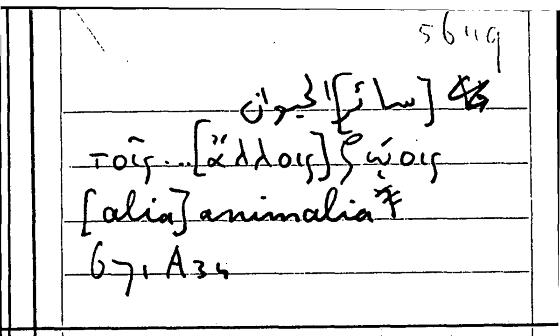 [سائر] الحيوان
τοῖς...[ἄλλοις] ζῴοις
[alia] animalia*
671 A34